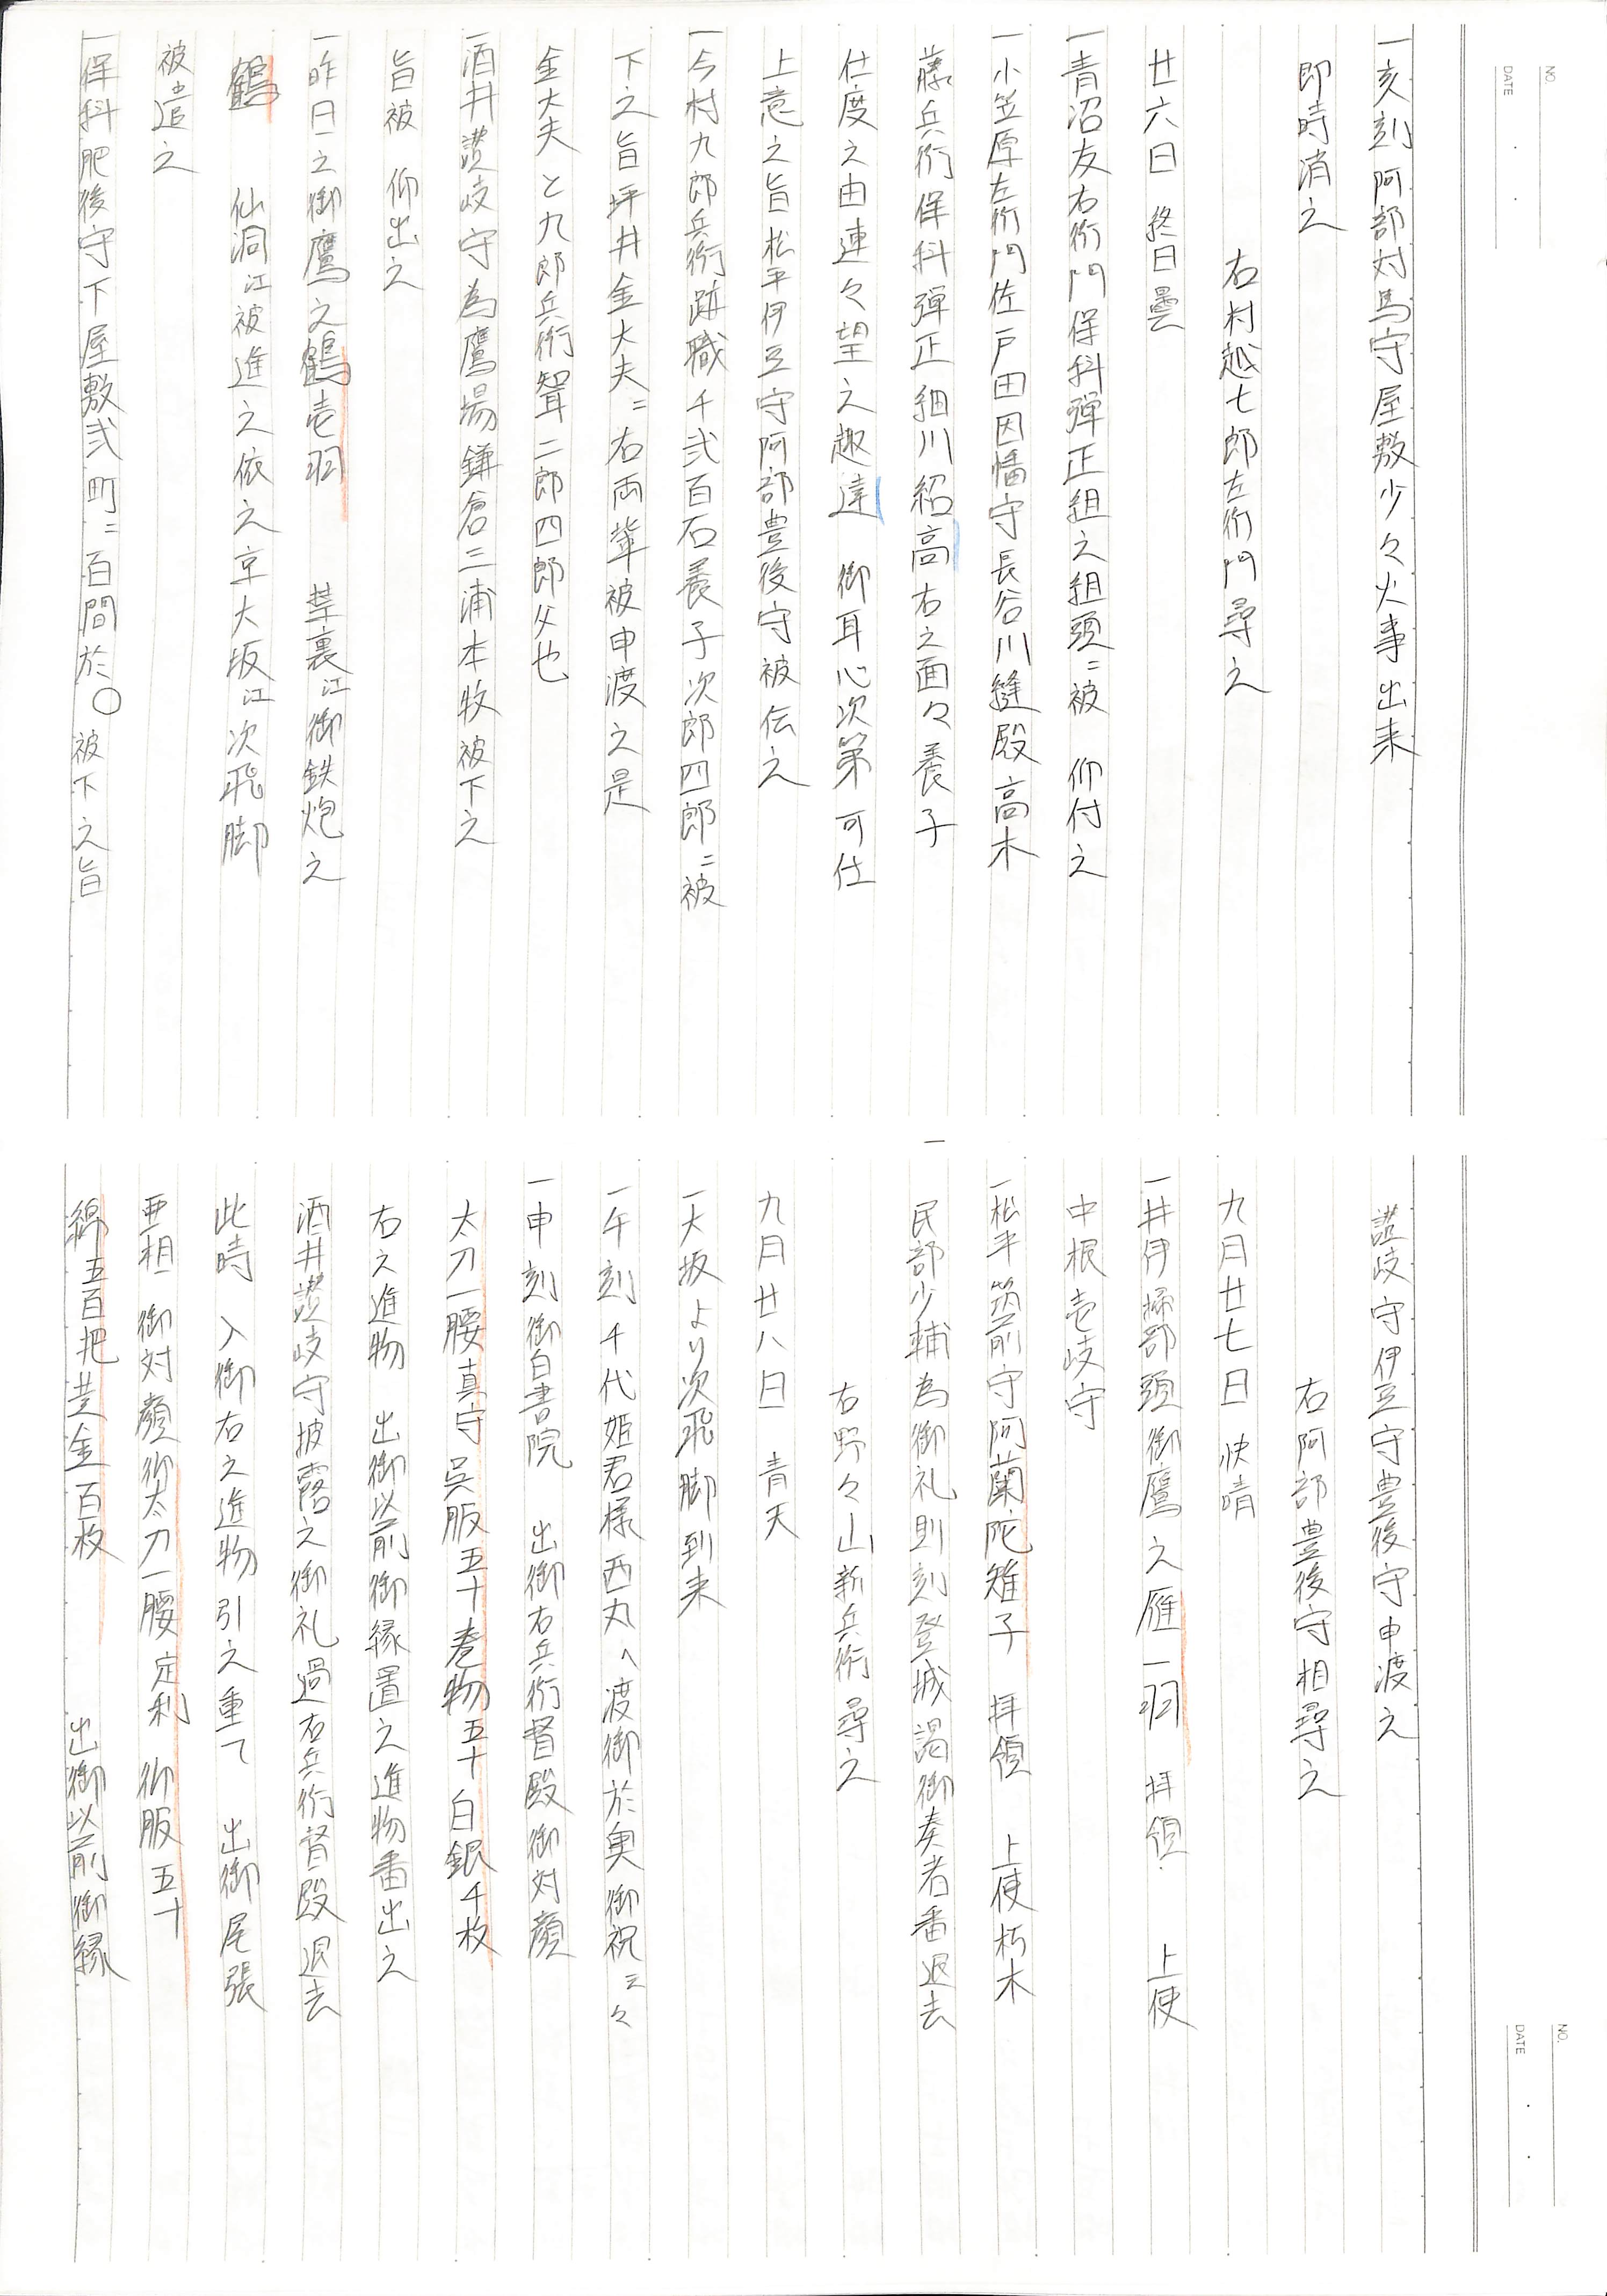 NO.
DATE
一亥刻阿部対馬守屋敷少々火事出来
即時消之
右村越七郎左衛門尋之
廿六日 終日曇
一青沼友右衛門保科弾正組之組頭ニ被 仰付之
一小笠原左衛門佐戸田因幡守長谷川縫殿高木
藤兵衛保科弾正細川紹高右之面々養子
仕度之由連々望之趣達 御耳心次第可仕
上意之旨松平伊豆守阿部豊後守被伝之
一今村九郎兵衛跡職千弐百石養子次郎四郎ニ被
下之旨坪井金大夫ニ右両輩被申渡之是
金大夫と九郎兵衛聟二郎四郎父也
一酒井讃岐守為鷹場鎌倉三浦本牧被下之
旨被 仰出之
一昨日之御鷹之鶴壱羽 禁裏江御鉄炮之
鶴 仙洞江被進之依之京大坂江次飛脚
被遣之
一保科肥後守下屋敷弐町ニ百間於〇被下之旨
NO.
DATE
讃岐守伊豆守豊後守申渡之
右阿部豊後守相尋之
九月廿七日 快晴
一井伊掃部頭御鷹之雁一羽 拝領 上使
中根壱岐守
一松平筑前守阿蘭陀雉子 拝領 上使朽木
民部少輔為御礼則刻登城謁御奏者番退去
右野々山新兵衛尋之
九月廿八日 青天
一大坂より次飛脚到来
一午刻千代姫君様西丸へ渡御於奥御祝云々
一申刻御白書院 出御右兵衛督殿御対顔
太刀一腰真守 呉服五十巻物五十白銀千枚
右之進物 出御以前御縁置之進物番出之
酒井讃岐守披露之御礼過右兵衛督殿退去
此時 入御右之進物引之重て 出御尾張
亜相 御対顔御太刀一腰定利 御服五十
綿五百把黄金百枚 出御以前御縁